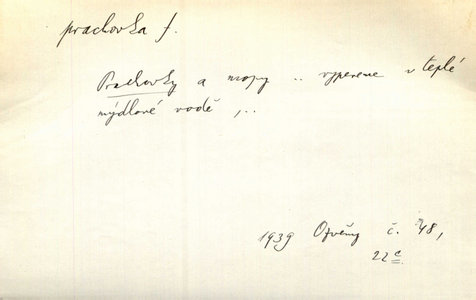 prachovka f.
Prachovky a mopy .. vypereme v teplé
mýdlové vodě, ..
1939 Ozvěny č. 48,
22c